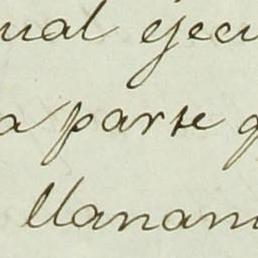 ual ejecu
a parte q
llanam